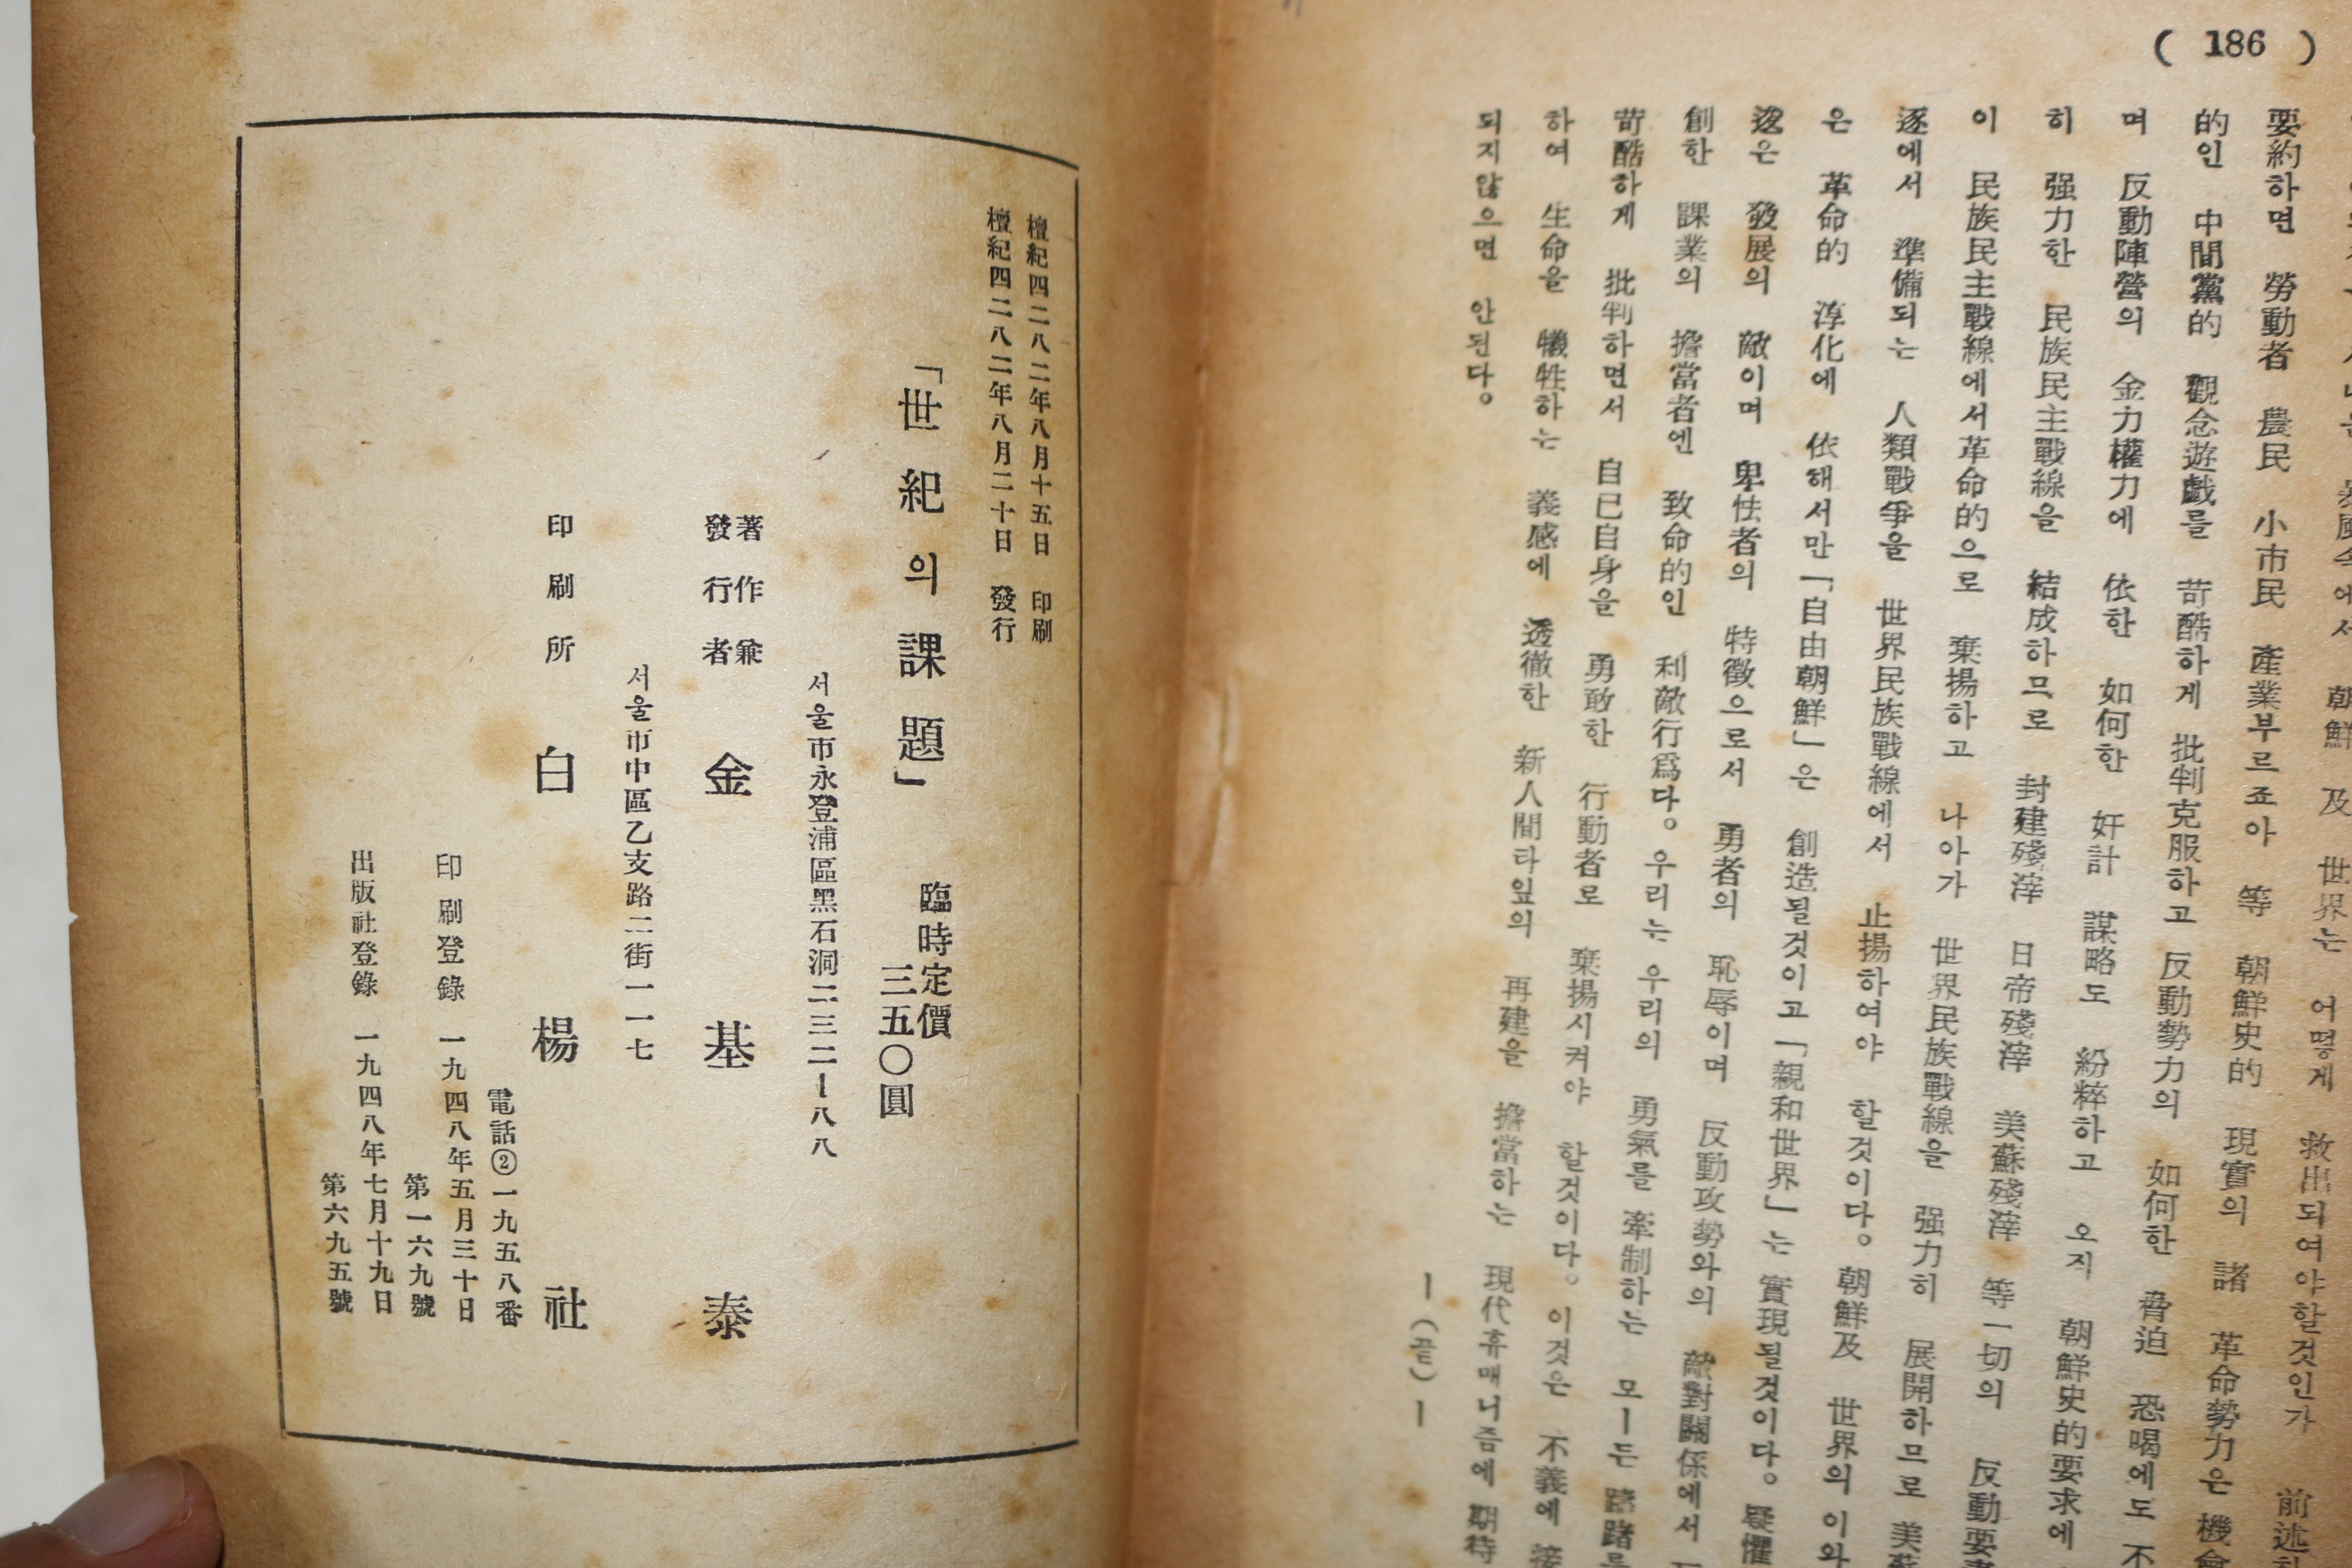 ( 186 )
朝鮮 及 世界는 어떻게 救出되여야할것인가 前述
要約하면 勞動者 農民 小市民 產業부르죠아 等 朝鮮史的 現實의 諸 革命勢力은 機會
的인 中間黨的 觀念遊戱를 苛酷하게 批判克服하고 反動勢力의 如何한 脅迫 恐喝에도 不
며 反動陣營의 金力權力에 依한 如何한 奸計 謀略도 紛粹하고 오직 朝鮮史的要求에
히 强力한 民族民主戰線을 結成하므로 封建殘滓 日帝殘滓 美蘇殘滓 等一切의 反動要素
이 民族民主戰線에서革命的으로 棄揚하고 나아가 世界民族戰線을 强力히 展開하므로 美蘇
逐에서 準備되는 人類戰爭을 世界民族戰線에서 止揚하여야 할것이다。朝鮮及 世界의 이와
은 革命的 淳化에 依해서만「自由朝鮮」은 創造될것이고「親和世界」는 實現될것이다。疑懼
逡은 發展의 敵이며 卑怯者의 特徵으로서 勇者의 恥辱이며 反動攻勢와의 敵對關係에서
創한 課業의 擔當者엔 致命的인 利敵行爲다。우리는 우리의 勇氣를 牽制하는 모ー든 躊躇를
苛酷하게 批判하면서 自己自身을 勇敢한 行動者로 棄揚시켜야 할것이다。이것은 不義에 接
하여 生命을 犧牲하는 義感에 透徹한 新人間타잎의 再建을 擔當하는 現代휴매니즘에 期待
되지않으면 안된다。
ー(끝)ー
檀紀四二八二年八月十五日 印刷
檀紀四二八二年八月二十日 發行
「世紀의課題」
臨時定價
三五〇圓
서울市永登浦區黑石洞二三二ー八八
著作兼
發行者
金基泰
서울市中區乙支路二街一一七
印刷所 白楊社
電話②一九五八番
印刷登錄 一九四八年五月三十日
第一六九號
出版社登錄 一九四八年七月十九日
第六九五號